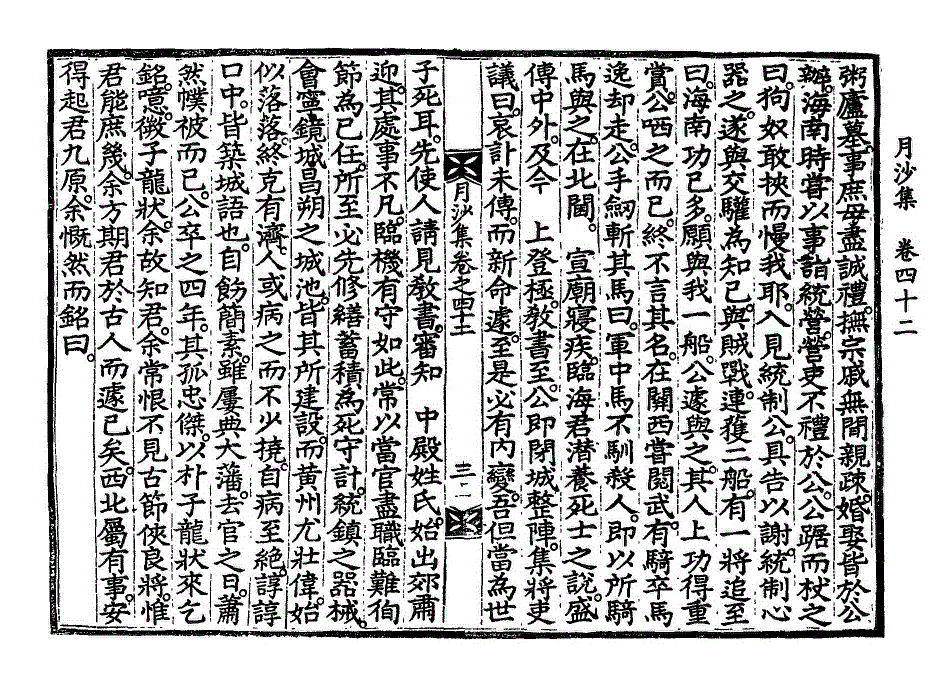 月沙集　卷四十二
粥廬墓事庶母盡誠禮撫宗戚無間親疎婚娶皆於公
辦海南時嘗以事詣統營營吏不禮於公公踞而杖之
曰狗奴敢挾而慢我耶入見統制公具告以謝統制心
器之遂與交驩為知己與賊戰連獲二船有一將追至
曰海南功已多願與我一船公遽與之其人上功得重
賞公哂之而已終不言其名在關西嘗閱武有騎卒馬
逸却走公手劒斬其馬曰軍中馬不馴殺人即以所騎
馬與之在北閫　宣廟寢疾臨海君潜養死士之說盛
傳中外及今　上登極敎書至公即閉城整陣集將吏
議曰哀訃未傳而新命遽至是必有內變吾但當為世
月沙集卷之四十二
三二
子死耳先使人請見敎書審知　中殿姓氏始出郊肅
迎其處事不凡臨機有守如此常以當官盡職臨難徇
節為己任所至必先修繕蓄積為死守計統鎮之器械
會寧鏡城昌朔之城池皆其所建設而黃州尤壯偉始
似落落終克有濟人或病之而不少撓自病至絶諄諄
口中皆築城語也自飭簡素雖屢典大藩去官之日蕭
然幞被而已公卒之四年其孤忠傑以朴子龍狀來乞
銘噫微子龍狀余故知君余常恨不見古節俠良將惟
君能庶幾余方期君於古人而遽已矣西北屬有事安
得起君九原余慨然而銘曰